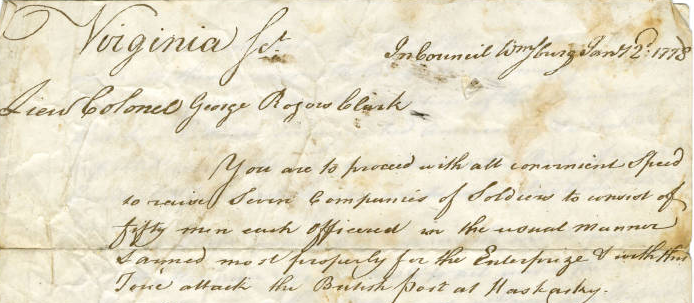 Virginia Sct.
In Council Wmsburg Jany 2d: 1778
Lieu Colonel George Rogers Clark
You are to proceed with all convenient Speed
to raise Seven Companies of Soldiers to consist of
fifty men each officered in the usual manner
& armed most properly for the Enterprize & with this
Force attack the British post at Kaskasky.